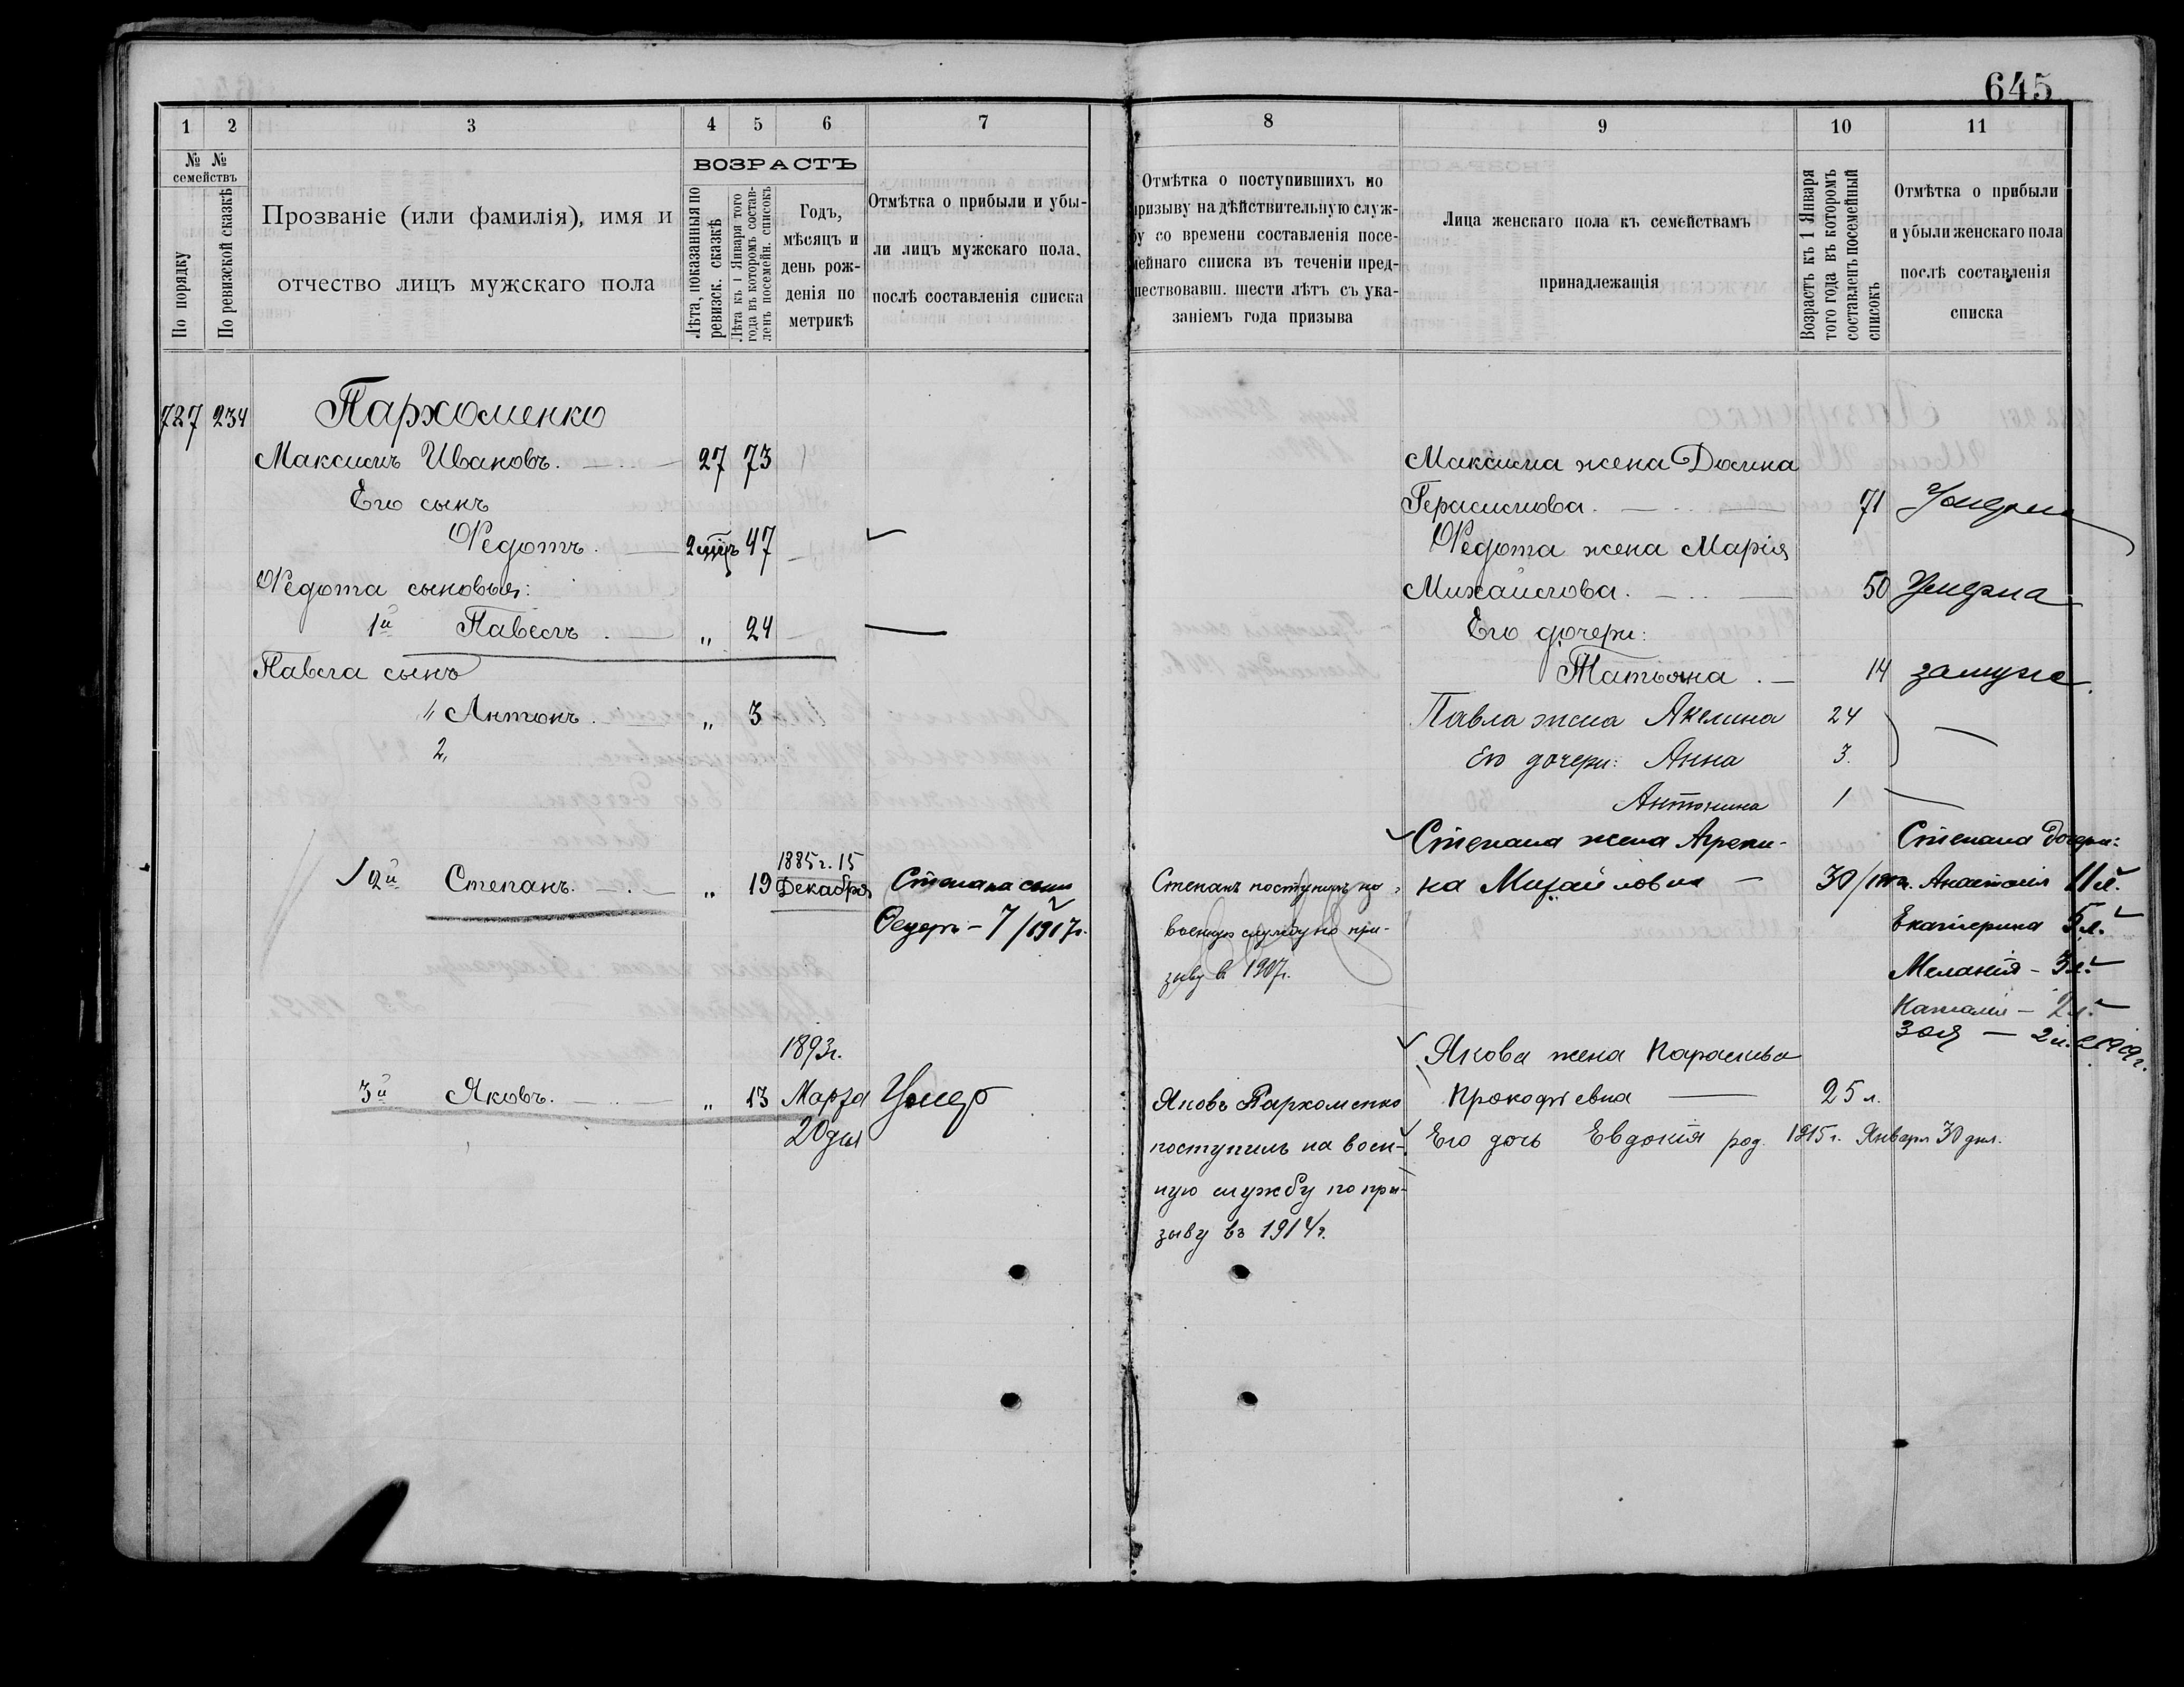 645
1 2 3 4 5 6 7
№ № семействъ
По порядку
По ревизской сказкѣ
Прозваніе (или фамилія), имя и
отчество лицъ мужскаго пола
ВОЗРАСТЪ
Лѣта, показанныя по
ревизск. сказкѣ
Лѣта къ 1 Января того
года въ которомъ состав-
ленъ посемейн. списокъ
Годъ,
мѣсяцъ и
день рож-
денія по
метрикѣ
Отмѣтка о прибыли и убы-
ли лицъ мужскаго пола,
послѣ составленія списка
727 234 Пархоменко
Максимъ Ивановъ. 27 73
Его сынъ
Федотъ. 47
Федота сыновья:
1й Павелъ. „ 24
Павла сынъ
„ Антонъ. „ 3
2,
1885 г. 15
2й Степанъ. „ 19 Декабря Степана сын
Федеръ - 7/1917г.
1893г.
3й Яковъ. „ 13 Марта Умер
20 дня
8 9 10 11
Отмѣтка о поступившихъ по
призыву на дѣйствительную служ-
бу со времени составленія посе-
мейнаго списка въ теченіи пред-
шествовавш. шести лѣтъ съ ука-
заніемъ года призыва
Лица женскаго пола къ семействамъ
принадлежащія
Возрастъ къ 1 Января
того года въ которомъ
составленъ посемейный
списокъ
Отмѣтка о прибыли
и убыли женскаго пола
послѣ составленія
списка
Максима жена Домна
Герасимова. 71 Умерла
Федота жена Марія
Михайлова. 50 Умерла
Его дочери:
Татьяна. 14 замуже
Павла жена Акелина 24
Его дочери: Анна 3.
Антонина 1
Степана жена Агрепи- Степана дочери:
Степанъ поступилъ на на Михайловна 30/ Анастасія 11 л.
военную службу по при- Екатерина 5 л.
зыву в 1907г. Меланія - 3 л.
Наталія - 2 л.
Зоя - 2 л. 1919г.
Якова жена Параскева
Яковъ Пархоменко Прокофіевна 25 л.
поступилъ на воен- Его дочь Евдокія род. 1915 г. Января 30 дня.
ную службу по при-
зыву въ 1914г.